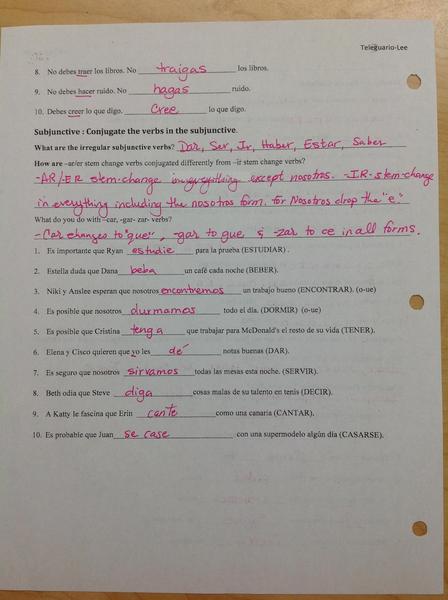 Teleguario-Lee
8. No debes traer los libros. No traigas los libros.
9. No debes hacer ruido. No hagas ruido.
10. Debes creer lo que digo. Cree lo que digo.
Subjunctive : Conjugate the verbs in the subjunctive.
What are the irregular subjunctive verbs? Dar, Ser, Ir, Haber, Estar, Saber
How are –ar/er stem change verbs conjugated differently from –ir stem change verbs?
-AR/ER stem-change in everything except nosotros. -IR-stem-change
in everything including the nosotros form. for Nosotros drop the "e."
What do you do with –car, -gar- zar- verbs?
-Car changes to "que", -gar to gue, & -zar to ce in all forms.
1. Es importante que Ryan estudie para la prueba (ESTUDIAR) .
2. Estella duda que Dana beba un café cada noche (BEBER).
3. Niki y Anslee esperan que nosotros encontremos un trabajo bueno (ENCONTRAR). (o-ue)
4. Es posible que nosotros durmamos todo el día. (DORMIR) (o-ue)
5. Es posible que Cristina tenga que trabajar para McDonald's el resto de su vida (TENER).
6. Elena y Cisco quieren que yo les dé notas buenas (DAR).
7. Es seguro que nosotros sirvamos todas las mesas esta noche. (SERVIR).
8. Beth odia que Steve diga cosas malas de su talento en tenis (DECIR).
9. A Katty le fascina que Erin cante como una canaria (CANTAR).
10. Es probable que Juan se case con una supermodelo algún día (CASARSE).